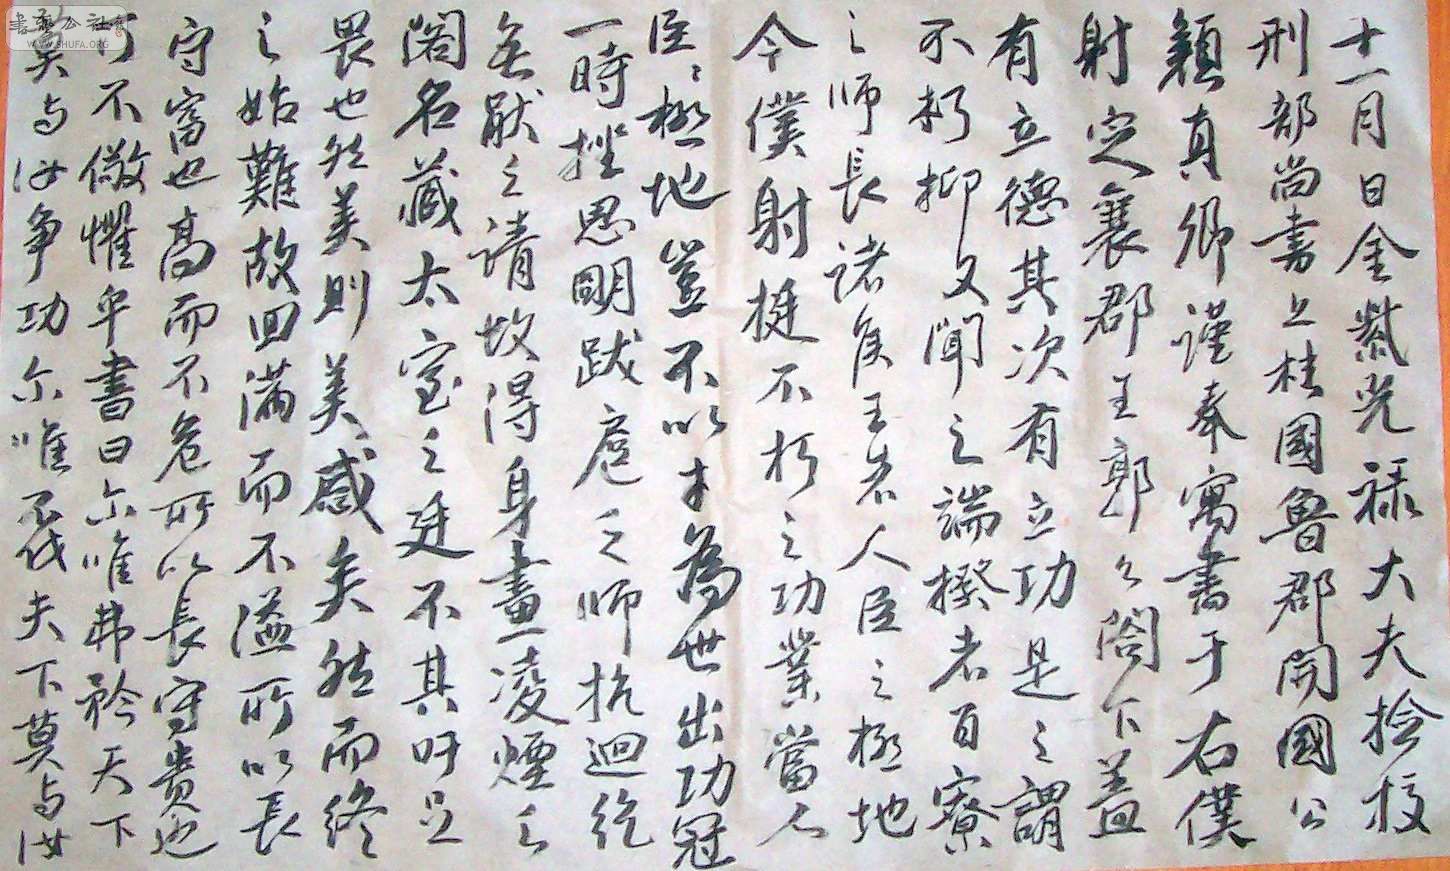 十一月日金紫光禄大夫捡挍
刑部尚書上柱國魯郡開國公
顏真卿謹奉寓書于右僕
射定襄郡王郭公閤下蓋
有立德其次有立功是之謂
不朽抑又聞之端揆者百寮
之師長諸侯王者人臣之極地
今僕射挺不朽之功業當人
臣〻極地豈不以才為世出功冠
一時挫思明跋扈之师抗迴纥
無厭之請故得身畫凌煙之
閣名藏太室之廷不其吁足
畏也然美則美矣然而終
之始難故曰滿而不溢所以長
守富也高而不危所以長守贵也
可不儆懼乎書曰尔唯弗矜天下
莫与汝争功尔唯不伐天下莫与汝
書艺公社
WWW.SHUFA.ORG